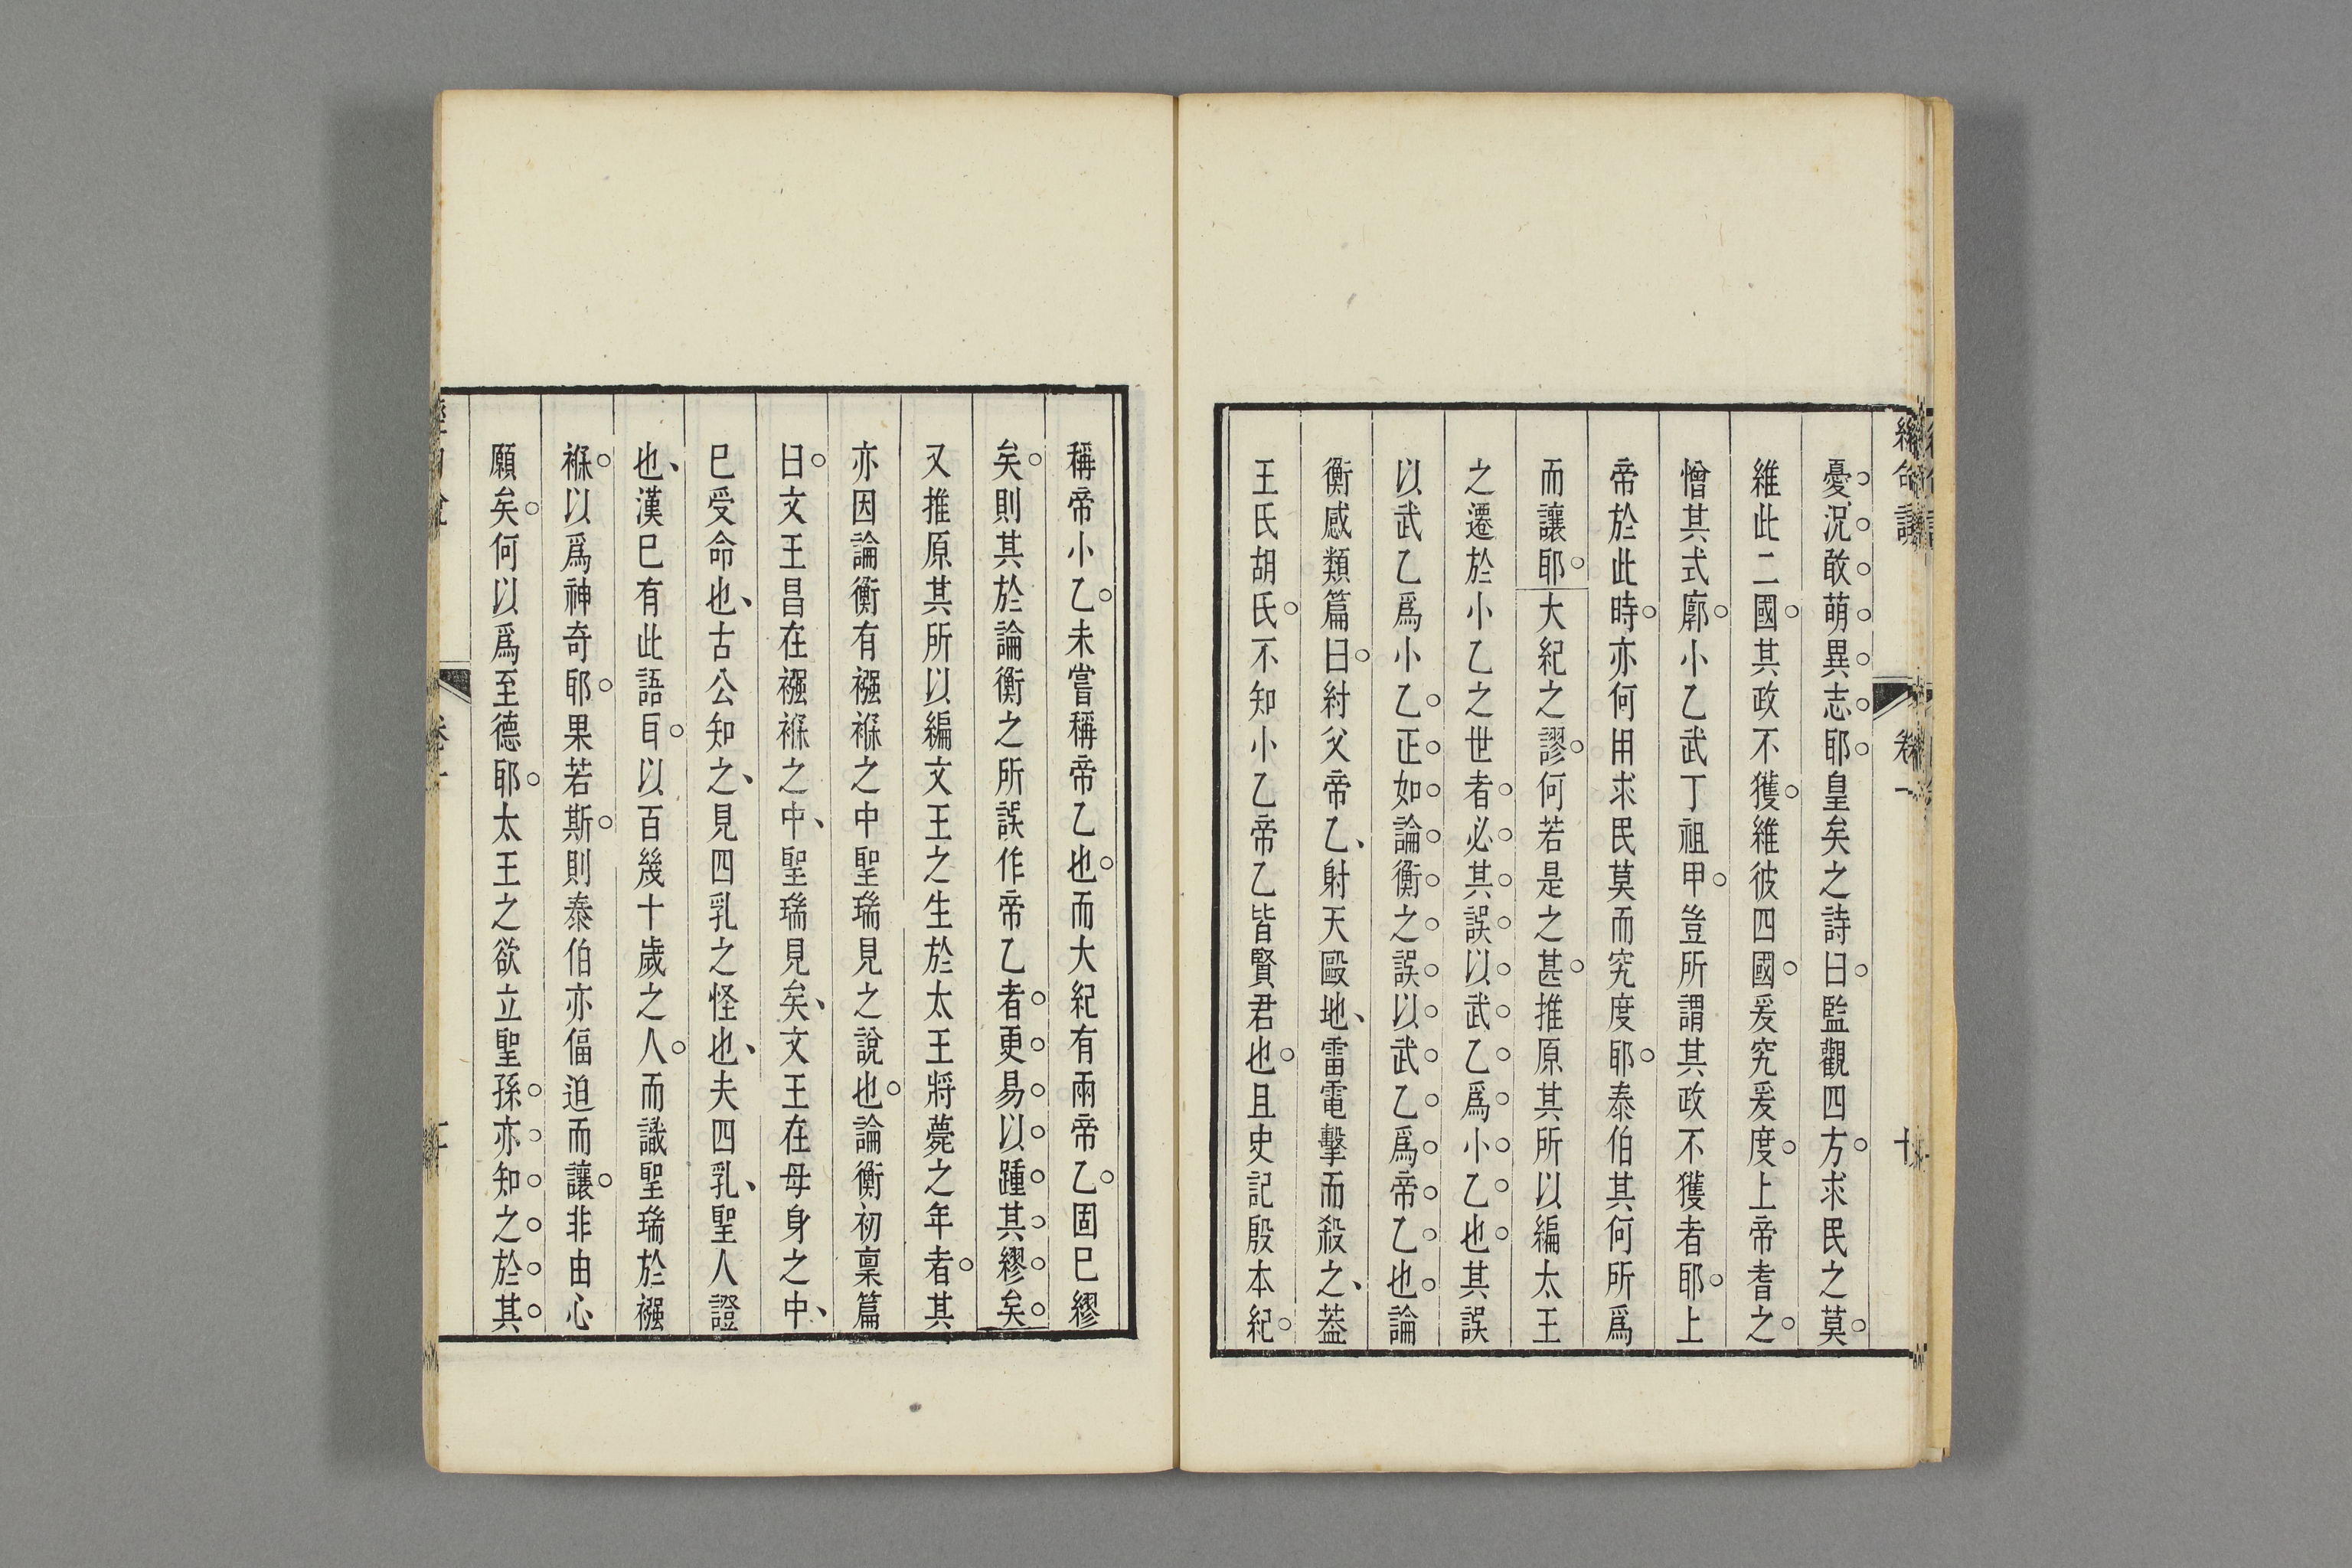 憂況敢萌異志耶皇矣之詩曰監觀四方求民之莫
維此二國其政不獲維彼四國爰究爰度上帝耆之
憎其式廓小乙武丁祖甲豈所謂其政不獲者耶上
帝於此時亦何用求民莫而究度耶泰伯其何所爲
而讓耶大紀之謬何若是之甚推原其所以編太王
之遷於小乙之世者必其誤以武乙爲小乙也其誤
以武乙爲小乙正如論衡之誤以武乙爲帝乙也論
衡感類篇曰紂父帝乙、射天毆地、雷電擊而殺之、葢
王氏胡氏不知小乙帝乙皆賢君也且史記殷本紀
稱帝小乙未嘗稱帝乙也而大紀有兩帝乙固巳繆
矣則其於論衡之所誤作帝乙者更易以踵其繆矣
又推原其所以編文王之生於太王將薨之年者其
亦因論衡有襁褓之中聖瑞見之說也論衡初稟篇
曰文王昌在襁褓之中、聖瑞見矣、文王在母身之中、
巳受命也、古公知之、見四乳之怪也、夫四乳、聖人證
也、漢巳有此語耳以百幾十歲之人而識聖瑞於襁
褓以爲神奇耶果若斯則泰伯亦偪迫而讓非由心
願矣何以爲至德耶太王之欲立聖孫亦知之於其
卷一